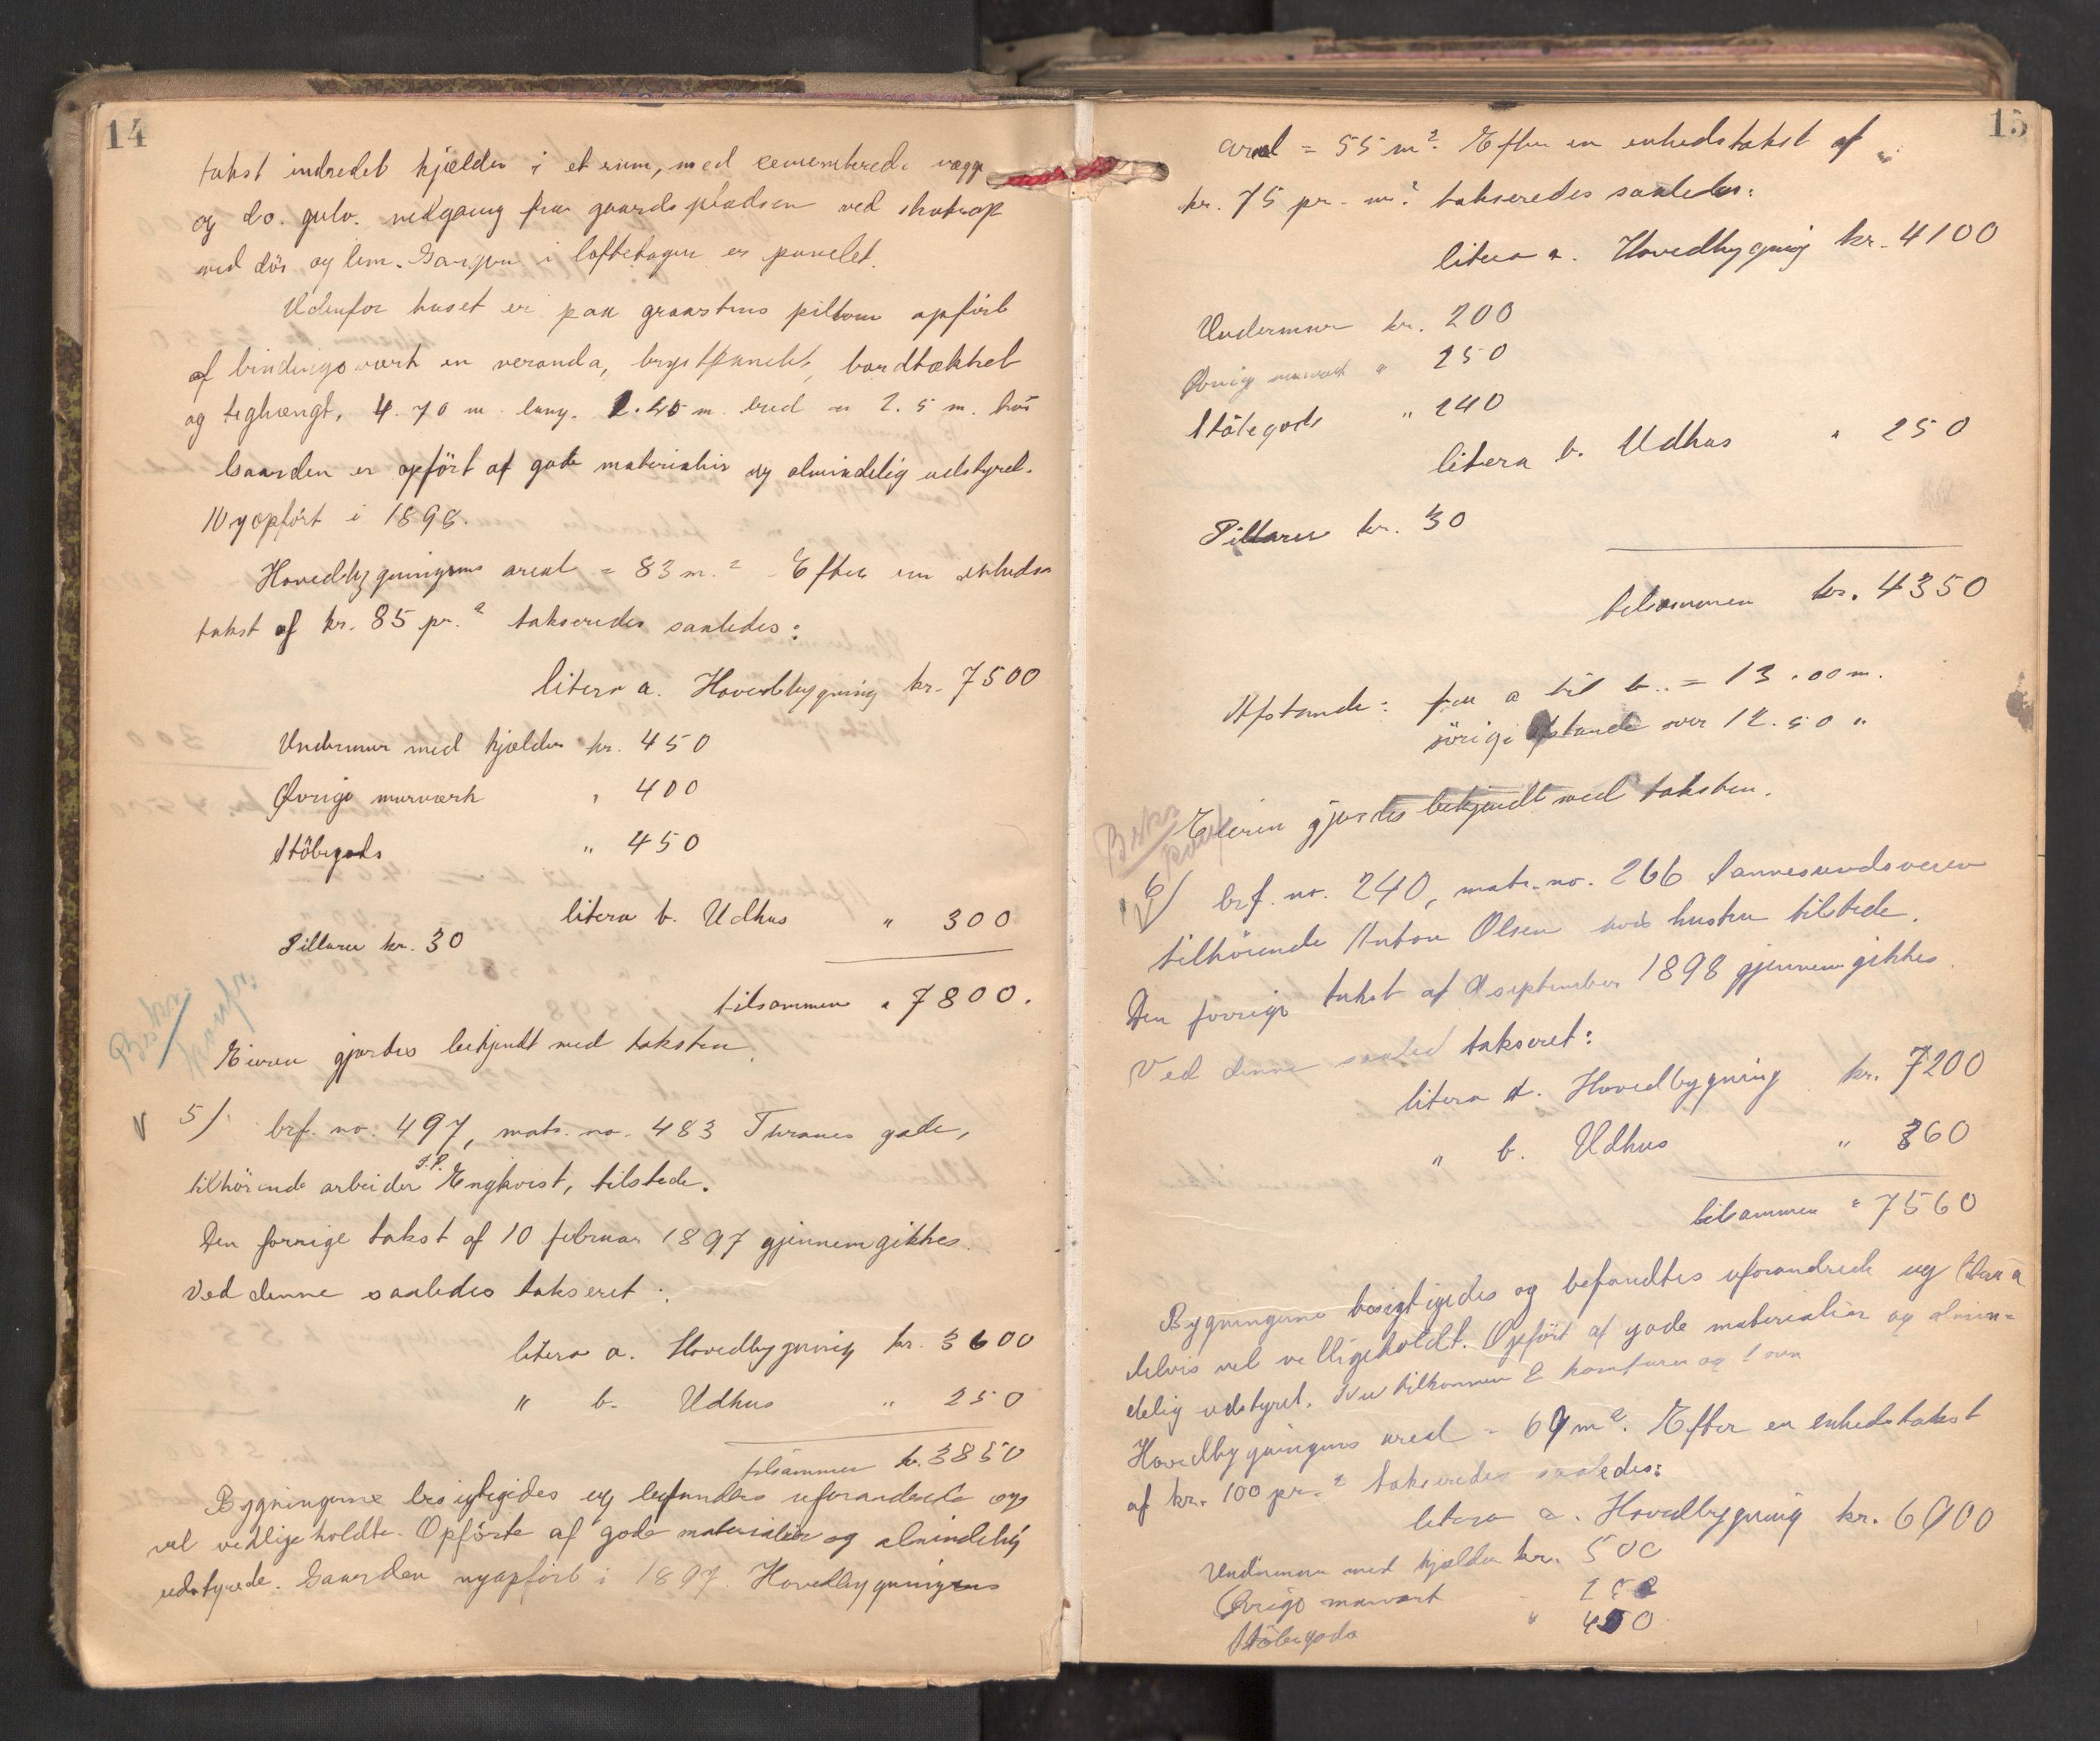 14
takst indredet kjælder i et rum, med cementerede vægge
og do. gulv. nedgang fra gaardspladsen ved
med dör og lem. Gangen i loftetagen er panelet.
Udenfor huset er paa graastens pillarer opfört
af bindingsværk en veranda, brystpanelet, bordtækket
og teghængt, 4.70 m. lang. m. bred og 2.5 m. höi
Gaarden er opfört af gode materialier og almindelig udstyret.
Nyopfört i 1898.
Hovedbygningens areal = 83 m.² Efter en enheds
takst af kr. 85 pr. ² takseredes saaledes:
litera a. Hovedbygning kr. 7500
Undermur med kjælder kr. 450
Øvrige murværk " 400
Stöbegods " 450
litera b. Udhus " 300
Pillarer kr. 30
tilsammen " 7800.
Eieren gjordes bekjendt med taksten.
V 5/. brf. no. 497, matr. no. 483 Thranes gade,
tilhörende arbeider J.P. Engkvist, tilstede.
Den forrige takst af 10 februar 1897 gjennemgikkes.
Ved denne saaledes takseret:
litera a. Hovedbygning kr. 3600
" b. Udhus " 250
tilsammen kr. 3850
Bygningerne besigtigedes og befandtes uforandrede og
vel vedligeholdte. Opförte af gode materialier og almindelig
udstyrede. Gaarden nyopfört i 1897. Hovedbygningens
15
areal = 55 m². Efter en enhedstakst af
kr. 75 pr. m² takseredes saaledes:
litera a. Hovedbygning kr. 4100
Undermur kr. 200
Øvrig murværk " 250
Stöbegods " 240
litera b. Udhus " 250
Pillarer kr. 30
tilsammen kr. 4350
Afstande: fra a til b. = 13.00 m.
övrige afstande over 12.50 "
Eieren gjordes bekjendt med taksten.
6/ brf. no. 240, matr. no. 266 Sannesundsveien
tilhörende Anton Olsen hvis hustru tilstede.
Den forrige takst af september 1898 gjennemgikkes.
Ved denne saaled takseret:
litera a. Hovedbygning kr. 7200
" b. Udhus " 360
tilsammen " 7560
Bygningerne besigtigedes og befandtes uforandrede og
delvis vel vedligeholdt. Opfört af gode materialier og almin-
delig udstyret. Nu tilkommen 2 komfurer og 1 ovn
Hovedbygningens areal = 69 m². Efter en enhedstakst
af kr. 100 pr. ² takseredes saaledes:
litera a. Hovedbygning kr. 6900
Undermur med kjælder kr. 500
Øvrige murværk
Stöbegods " 450